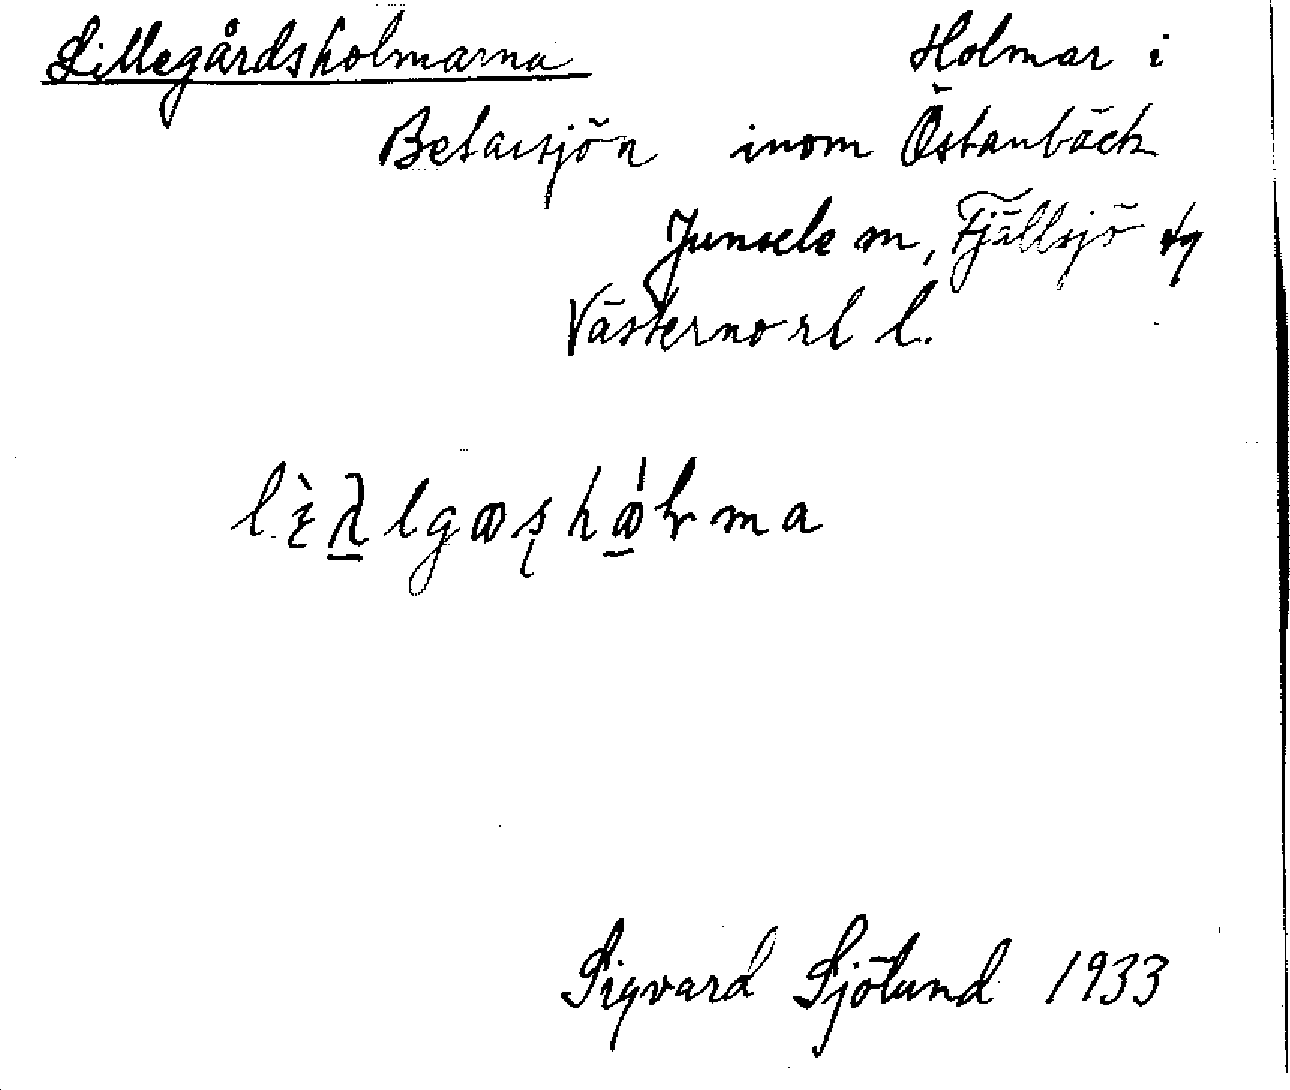 Lillegårdsholmarna Holmar i
Betarsjön inom Östanbäck
Junsele sn, Fjällsjö tg
Västernorl l.
Sigvard Sjölund 1933